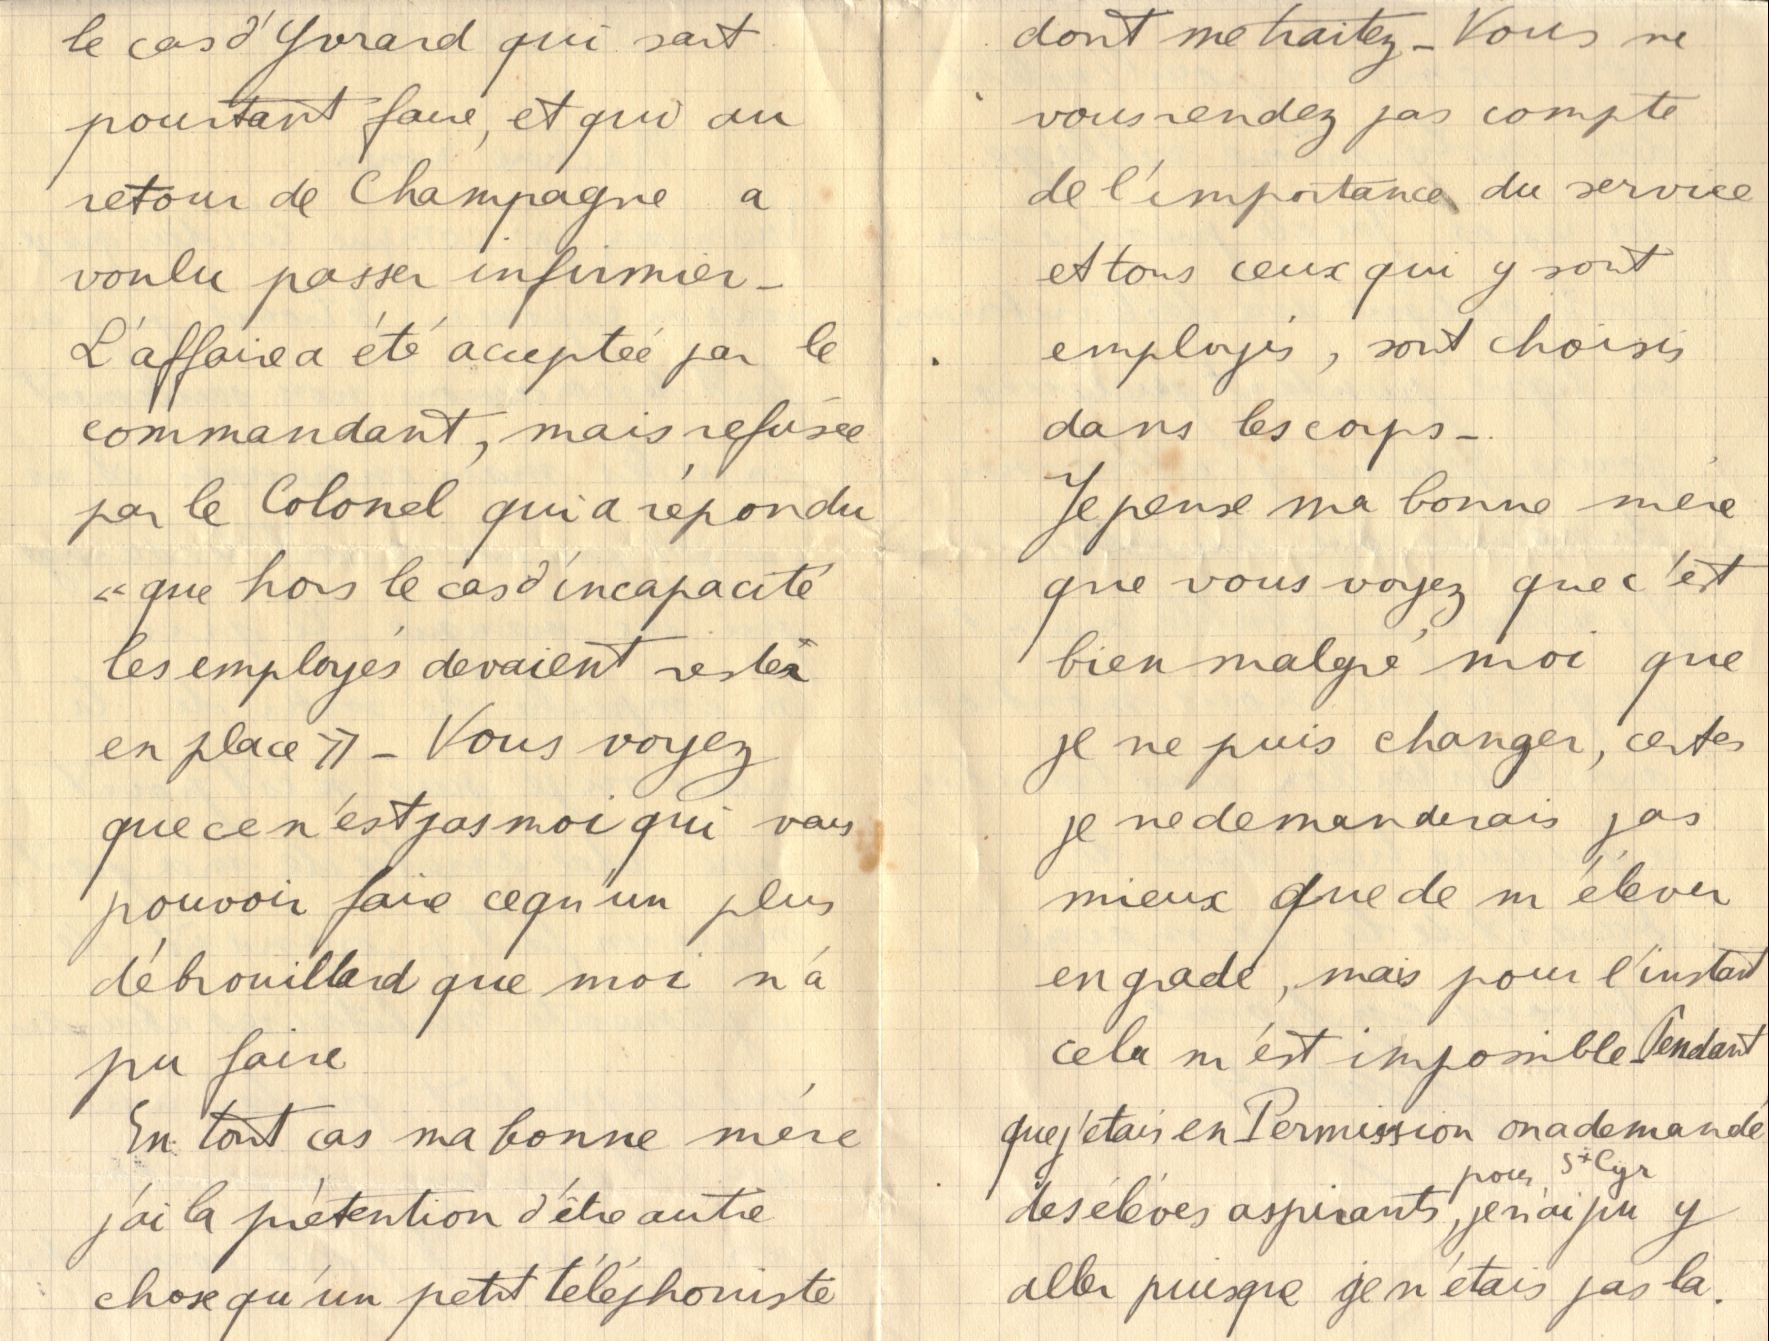 le cas d'Yvrard qui sait
pourtant faire, et qui au
retour de Champagne a
voulu passer infirmier_
L'affaire a été acceptée par le
commandant, mais refusée
par le Colonel qui a répondu
« que hors le cas d'incapacité
les employés devaient rester
en place » _ Vous voyez
que ce n'est pas moi qui vais
pouvoir faire ce qu'un plus
débrouillard que moi n'a
pu faire
En tout cas ma bonne mère
j'ai la prétention d'être autre
chose qu'un petit téléphoniste
dont me traitez _ Vous ne
vous rendez pas compte
de l'importance du service
et tous ceux qui y sont
employés, sont choisis
dans les corps _
Je pense ma bonne mère
que vous voyez que c'est
bien malgré moi que
je ne puis changer, certes
je ne demanderais pas
mieux que de m'élever
en grade, mais pour l'instant
cela m'est impossible_ Pendant
que j'étais en Permission on a demandé
des élèves aspirants pour St Cyr, je n'ai pu y
aller puisque je n'étais pas la.